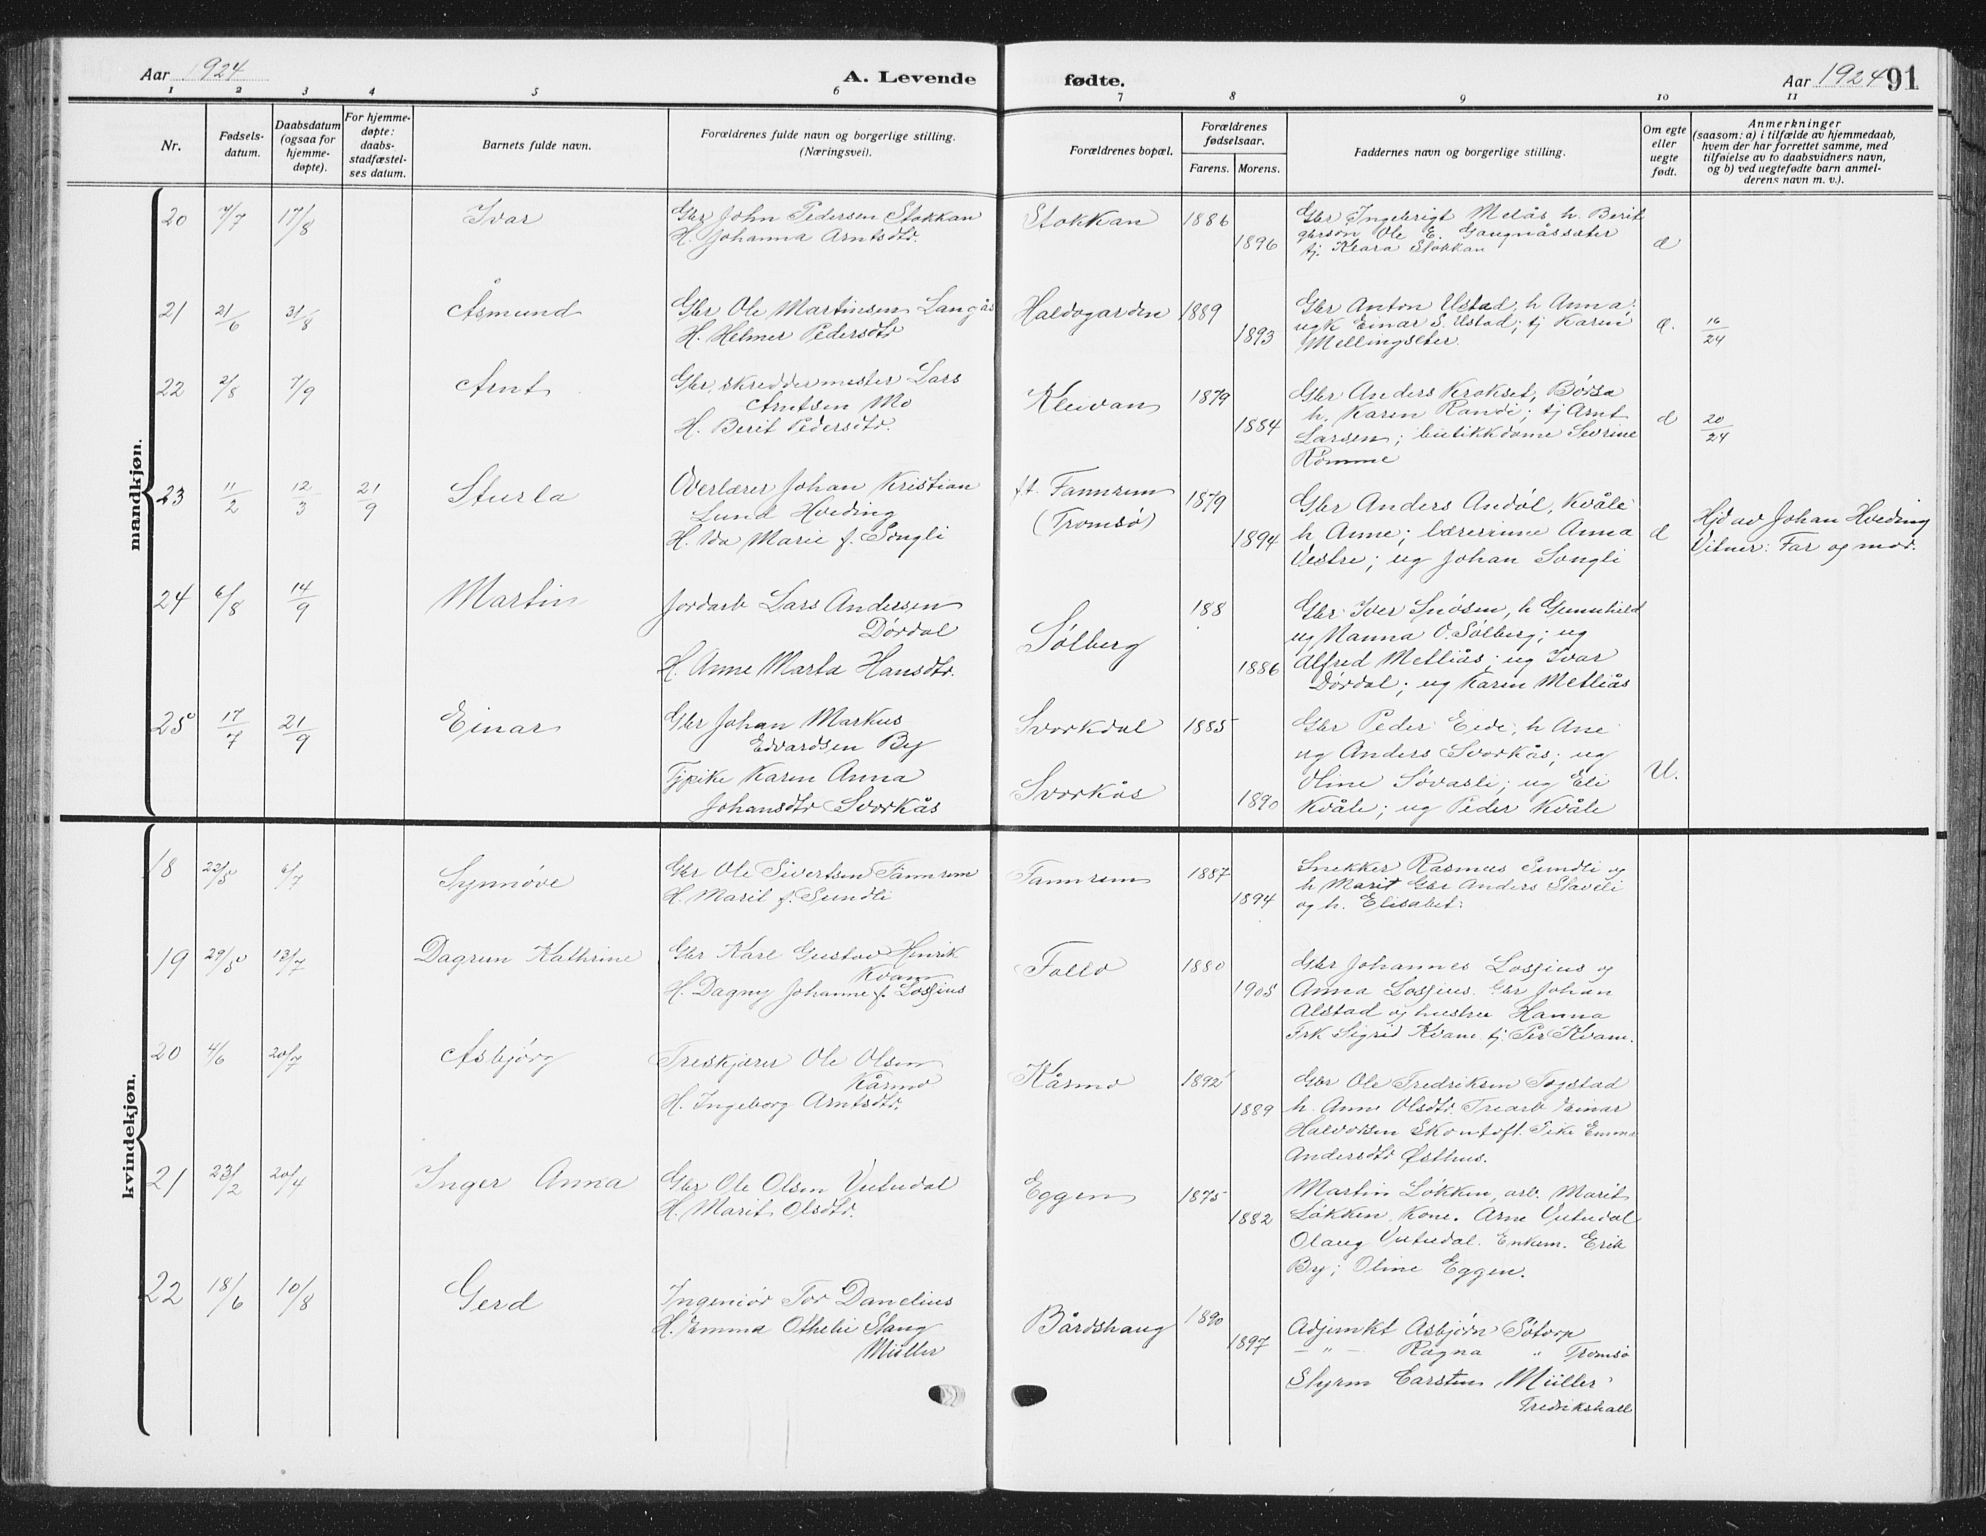 Aar 1924
A. Levende
fødte.
Aar 1924
91
1 2 3 4 5 6 7 8 9 10 11
Nr.
Fødsels-
datum.
Daabsdatum
(ogsaa for
hjemme-
døpte).
For hjemme-
døpte:
daabs-
stadfæstel-
ses datum.
Barnets fulde navn.
Forældrenes fulde navn og borgerlige stilling.
(Næringsvei).
Forældrenes bopæl.
Forældrenes
fødselsaar.
Farens. Morens.
Faddernes navn og borgerlige stilling.
Om egte
eller
uegte
født.
Anmerkninger
(saasom: a) i tilfælde av hjemmedaab,
hvem der har forrettet samme, med
tilføielse av to daabsvidners navn,
og b) ved uegtefødte barn anmel-
derens navn m. v.).
mandkjøn.
20 7/7 17/8 Ivar
Gbr John Pedersen Stokkan
H. Johanna Arntsdtr.
Stokkan 1886
1896
Gbr Ingebrigt Melås h. Berit
gårson Ole E. Gangnåssæter
tj. Klara Stokkan
21 21/6 31/8 Åsmund
Gbr Ole Martinsen Langås
H. Helmer Pedersdtr
Haldogarden 1889
1893
Gbr Anton Ustad, h Anna;
ugk Einar S. Ustad; tj Karen
Mellingseter.
16/24
22 2/8 7/9 Arnt
Gbr, skreddermester Lars
Arntsen Mo
H. Berit Pedersdtr.
Kleivan 1879
1884
Gbr Anders Krokset, Børsa
h. Karen Randi; tj Arnt
Larsen; butikkdame Sevrine
Rømme
20/24
23 11/2 12/3 21/9 Sturla
Overlærer Johan Kristian
Lund Hveding
H. Ida Marie f. Songli
ft. Fannrem
(Tromsø)
1879
1894
Gbr Anders Andøl, Kvåle
h Anne; lærerinne Anna
Vestre; ug Johan Songli
Hjd av Johan Hveding
Vitner: Far og mor.
24 6/8 14/9 Martin
Jordarb Lars Andersen
Dørdal
H. Anne Marta Hansdtr.
Sølberg
188
1886
Gbr Iver Snøsen, h Gunnhild
ug Nanna O. Sølberg; ug
Alfred Metliås; ug Ivar
Dørdal; ug Karen Metliås
25 17/7 21/9 Einar
Gbr Johan Markus
Edvardsen By
Tjpike Karen Anna
Johansdtr Svorkås
Svorkdal 1885
Svorkås 1890
Gbr Peder Eide; h Ane
ug Anders Svorkås; ug
Oline Søvasli; ug Eli
Kvåle; ug Peder Kvåle
U.
kvindekjøn.
18 6/7 Synnøve
Gbr Ole Sivertsen Fannrem
H. Marit f. Sundli
Fannrem 1887
1894
Snekker Rasmus Sundli og
h Marit Gbr Anders Slavéli
og h. Elisabet.
19 29/5 13/7 Dagrun Kathrine
Gbr Karl Gustav Henrik
Kvam
H. Dagny Johanne f. Losjius
Follo 1880
1905
Gbr Johannes Losjius og
Anna Losjius. Gbr Johan
Alstad og hustru Hanna
Frk Sigrid Kvam tj. Per Kvam.
20 4/6 20/7 Asbjørg
Treskjærer Ole Olsen
Kårmo
H. Ingeborg Arntsdtr.
Kårmo 1892
1889
Gbr Ole Fredriksen Togstad
h. Anne Olsdtr. Trearb Einar
Halvorsen Skomtoft. Pike Emma
Andersdtr Østhus.
21 23/2 20/4 Inger Anna
Gbr Ole Olsen Vutudal
H. Marit Olsdtr.
Eggen 1875
1882
Martin Løkken, arb. Marit
Løkken, Kone. Arne Vutudal
Olaug Vutudal. Enkem. Erik
By; Oline Eggen.
22 18/6 10/8 Gerd
Ingeniør Tor Danelius
H. Emma Othelie Stang
Müller
Bårdshaug 1890
1897
Adjunkt Asbjørn Søtorp
— " — Ragna " Tromsø
Styrm Carsten Müller
Fredrikshall